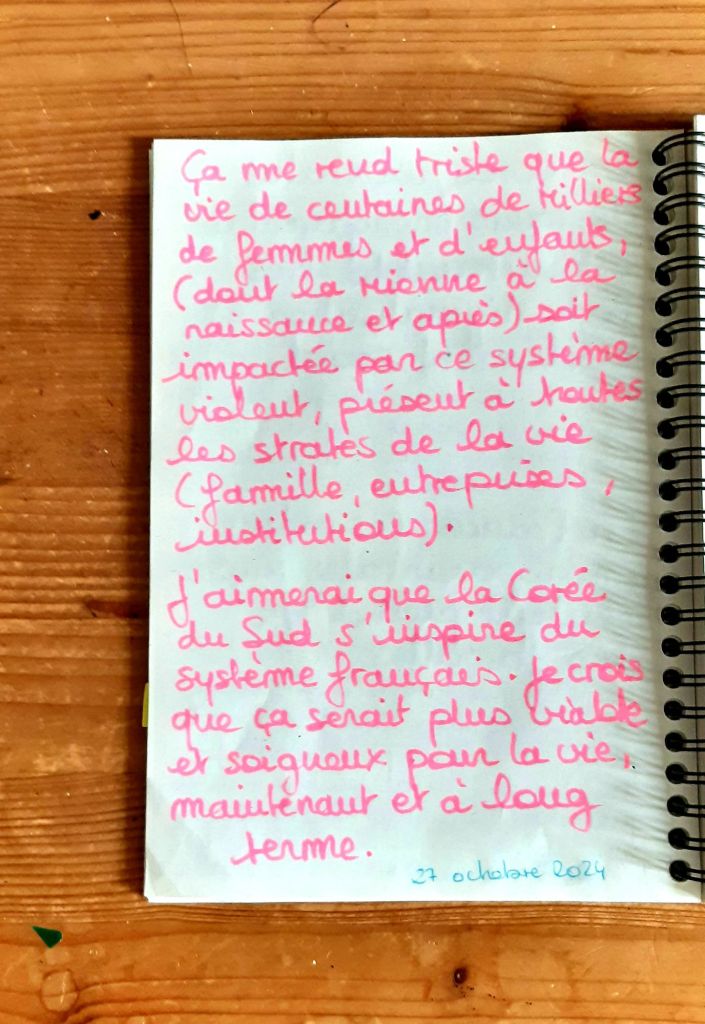 Ça me rend triste que la
vie de centaines de milliers
de femmes et d'enfants,
(dont la mienne à la
naissance et après) soit
impactée par ce système
violent, présent à toutes
les strates de la vie
(famille, entreprises,
institutions).
J'aimerai que la Corée
du Sud s'inspire du
système français. Je crois
que ça serait plus viable
et soigneux pour la vie,
maintenant et à long
terme.
27 octobre 2024